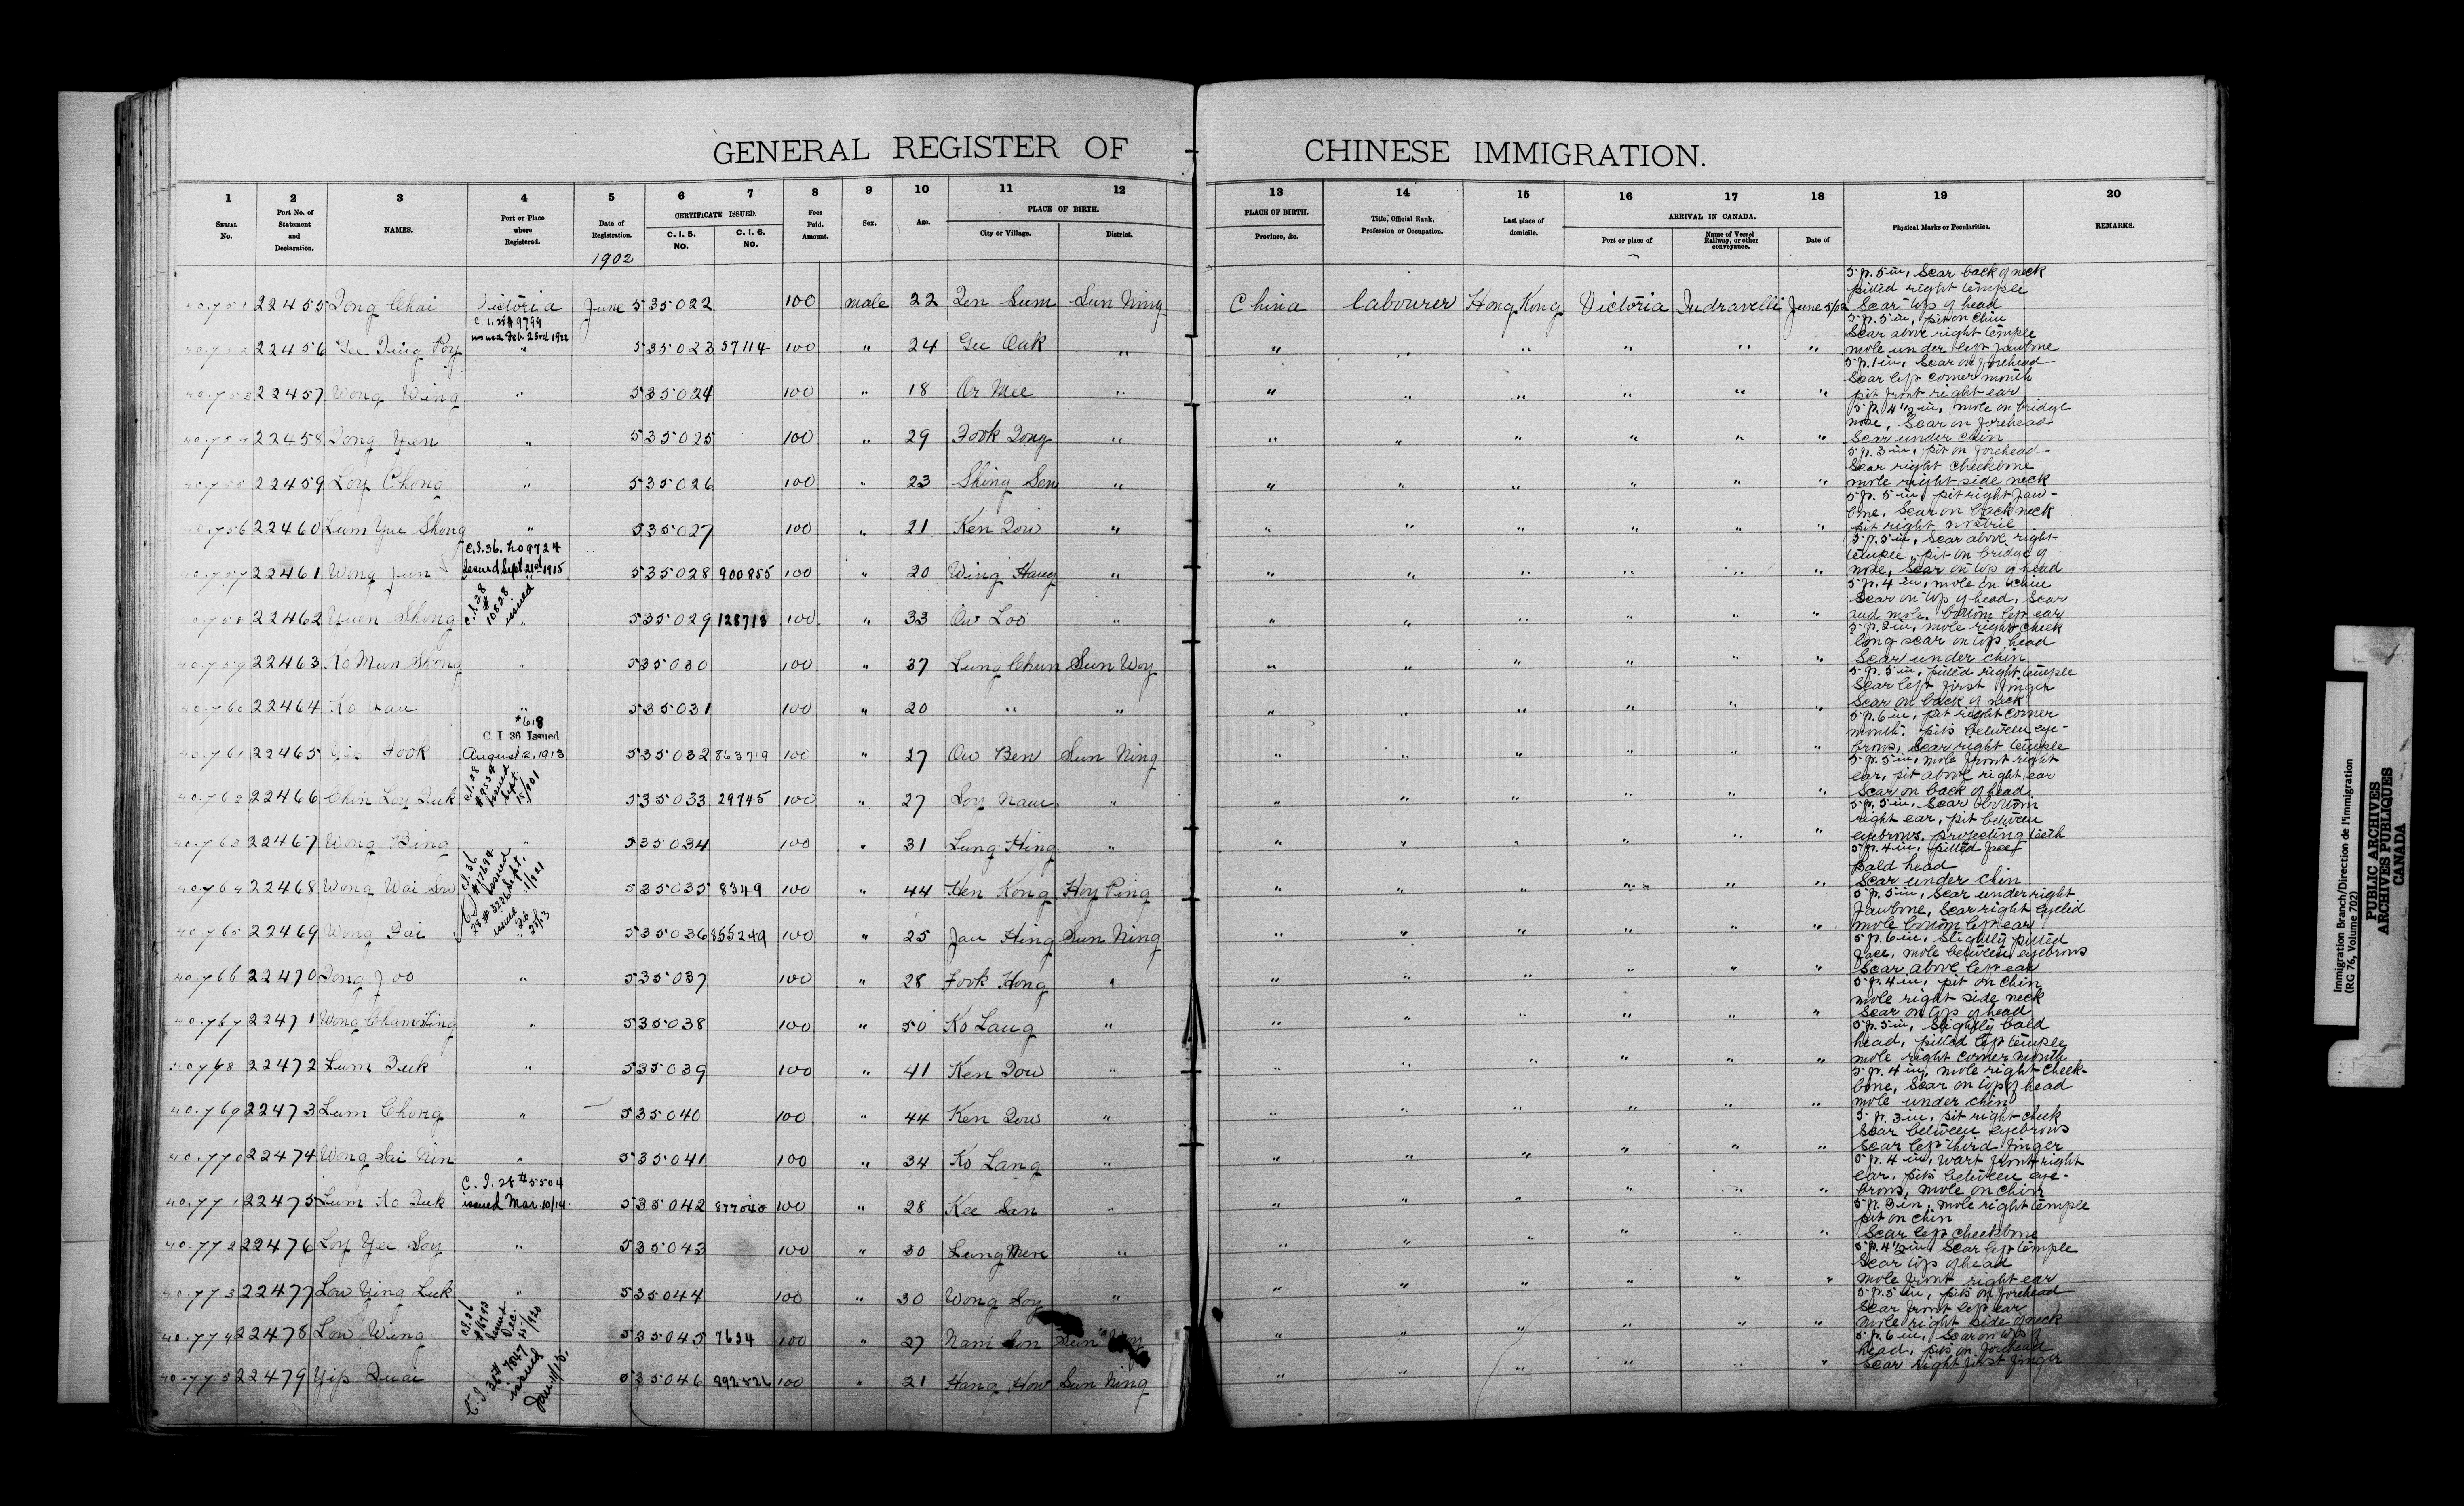 GENERAL REGISTER OF CHINESE IMMIGRATION.
1 2 3 4 5 6 7 8 9 10 11 12 13 14 15 16 17 18 19 20
SERIAL No. Port No. of Statement and Declaration. NAMES. Port or Place where Registered. Date of Registration. CERTIFICATE ISSUED. C. I. 5. NO. C. I. 6. NO. Fees Paid. Amount. Sex. Age. PLACE OF BIRTH. City or Village. District. PLACE OF BIRTH. Province, &c. Title, Official Rank, Profession or Occupation. Last place of domicile. ARRIVAL IN CANADA. Port or place of Name of Vessel Railway, or other conveyance. Date of Physical Marks or Peculiarities. REMARKS.
1902
40.751 22455 Dong Chai Victoria June 5 35022 100 male 22 Sun Ning China labourer Hong Kong Victoria Indravelli June 5/02 5 ft. 5 in, Scar back of neck pitted right temple Scar top of head
40.752 22456 Gee Ding Poy C.I. 28 # 9799 issued Feb. 23rd 1922 " 5 35023 57114 100 " 24 Gee Oak " " " " " " " 5 ft. 5 in, pit on chin Scar above right temple mole under left jawbone
40.753 22457 Wong Wing " 5 35024 100 " 18 Or Mee " " " " " " " 5 ft. 1 in, Scar on forehead Scar left corner mouth pit front right ear
40.754 22458 Dong Yen " 5 35025 100 " 29 Fook Dong " " " " " " " 5 ft. 4 1/2 in, mole on bridge nose, Scar on forehead Scar under chin
40.755 22459 Loy Chong " 5 35026 100 " 23 Shing Sen " " " " " " " 5 ft. 3 in, pit on forehead Scar right cheekbone mole right side neck
40.756 22460 Lum Yue Shong " 5 35027 100 " 21 Ken Dow " " " " " " " 5 ft. 5 in, pit right jaw-bone, Scar on back neck pit right nostril
40.757 22461 Wong Jun C.I. 36. No 9724 Issued Sept 21st 1915 " 5 35028 900855 100 " 20 Wing Hang " " " " " " " 5 ft. 5 in, Scar above right temple, pit on bridge of nose, Scar on top of head
40.758 22462 Yuen Shong C.I. 28 # 10828 issued " 5 35029 128718 100 " 33 Ow Loo " " " " " " " 5 ft. 4 in, mole on chin Scar on top of head, Scar and mole bottom left ear
40.759 22463 Ko Mun Shong " 5 35030 100 " 37 Lung Chun Sun Woy " " " " " " 5 ft. 2 in, mole right cheek long scar on top head Scar under chin
40.760 22464 Ko Jau " 5 35031 100 " 20 " " " " " " " " 5 ft. 5 in, pitted right temple Scar left first finger Scar on back of neck
40.761 22465 Yip Fook #618 C. I. 36 Issued August 2, 1913 5 35032 863719 100 " 27 Ow Ben Sun Ning " " " " " " 5 ft. 6 in, pit right corner mouth, pits between eye-brows, Scar right temple
40.762 22466 Chin Loy Duk C.I. 28 issued Sept 5 35033 29745 100 " 27 Soy Nam " " " " " " " 5 ft. 5 in, mole front right ear, pit above right ear Scar on back of head
40.763 22467 Wong Bing " 5 35034 100 " 31 Lung Hing " " " " " " " 5 ft. 5 in, Scar bottom right ear, pit between eyebrows, projecting teeth
40.764 22468 Wong Wai Sow C.I. 36 issued Sept. 5 35035 8349 100 " 44 Hen Kong Hoy Ping " " " " " " 5 ft. 4 in, pitted face bald head Scar under chin
40.765 22469 Wong Dai issued 5 35036 855249 100 " 25 Jau Hing Sun Ning " " " " " " 5 ft. 5 in, Scar under right jawbone, Scar right eyelid mole bottom left ear
40.766 22470 Dong Joo " 5 35037 100 " 28 Fook Hong " " " " " " " 5 ft. 6 in, Slightly pitted face, mole between eyebrows Scar above left ear
40.767 22471 Wong Cham Ting " 5 35038 100 " 50 Ko Lang " " " " " " " 5 ft. 4 in, pit on chin mole right side neck Scar on top of head
40.768 22472 Lum Duk " 5 35039 100 " 41 Ken Dow " " " " " " " 5 ft. 5 in, Slightly bald head, pitted left temple mole right corner mouth
40.769 22473 Lum Chong " 5 35040 100 " 44 Ken Dow " " " " " " " 5 ft. 4 in, mole right cheek-bone, Scar on top of head mole under chin
40.770 22474 Wong Sai Nin " 5 35041 100 " 34 Ko Lang " " " " " " " 5 ft. 3 in, pit right cheek Scar between eyebrows Scar left third finger
40.771 22475 Lum Ko Duk C. I. 28 #5504 issued Mar. 10/14. 5 35042 877040 100 " 28 Kee San " " " " " " " 5 ft. 4 in, wart front right ear, pits between eye-brows, mole on chin
40.772 22476 Loy Yee Soy " 5 35043 100 " 30 Lung Men " " " " " " " 5 ft. 3 in, mole right temple pit on chin Scar left cheekbone
40.773 22477 Low Ying Luk " 5 35044 100 " 30 Wong Soy " " " " " " " 5 ft. 4 1/2 in, Scar left temple Scar top of head mole front right ear
40.774 22478 Low Wing C.I. 36 issued Dec. 5 35045 7634 100 " 27 Nam Son Sun Woy " " " " " " 5 ft. 5 in, pits on forehead Scar front left ear mole right side of neck
40.775 22479 Yip Duai C.I. 36 # 7847 issued Jan. 11/15. 5 35046 892826 100 " 21 Hang How Sun Ning " " " " " " 5 ft. 6 in, Scar on top of head, pits on forehead Scar right first finger
Immigration Branch/Direction de l'immigration
(RG 76, Volume 702)
PUBLIC ARCHIVES
ARCHIVES PUBLIQUES
CANADA